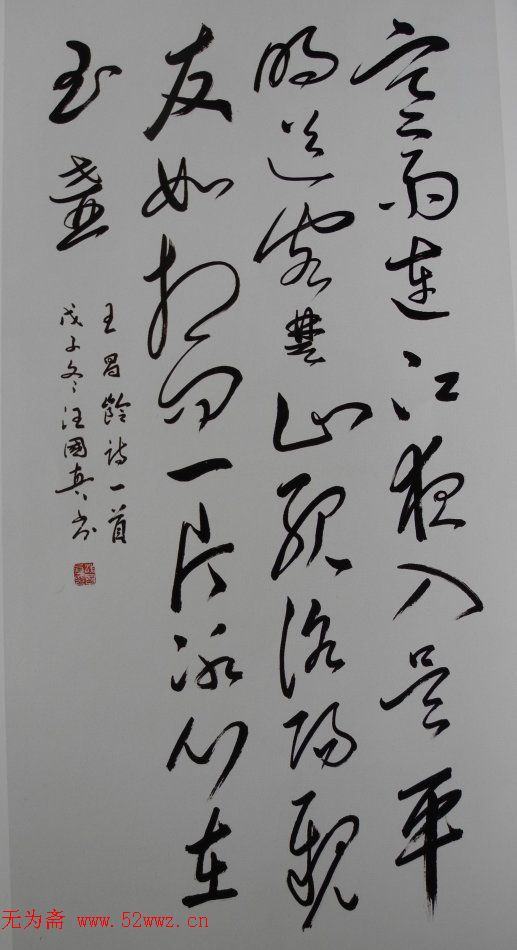 寒雨連江夜入吳平
明送客楚山孤洛陽親
友如相問一片冰心在
玉壺
王昌齡詩一首
戊子冬汪國真書
无为斋 www.52wwz.cn